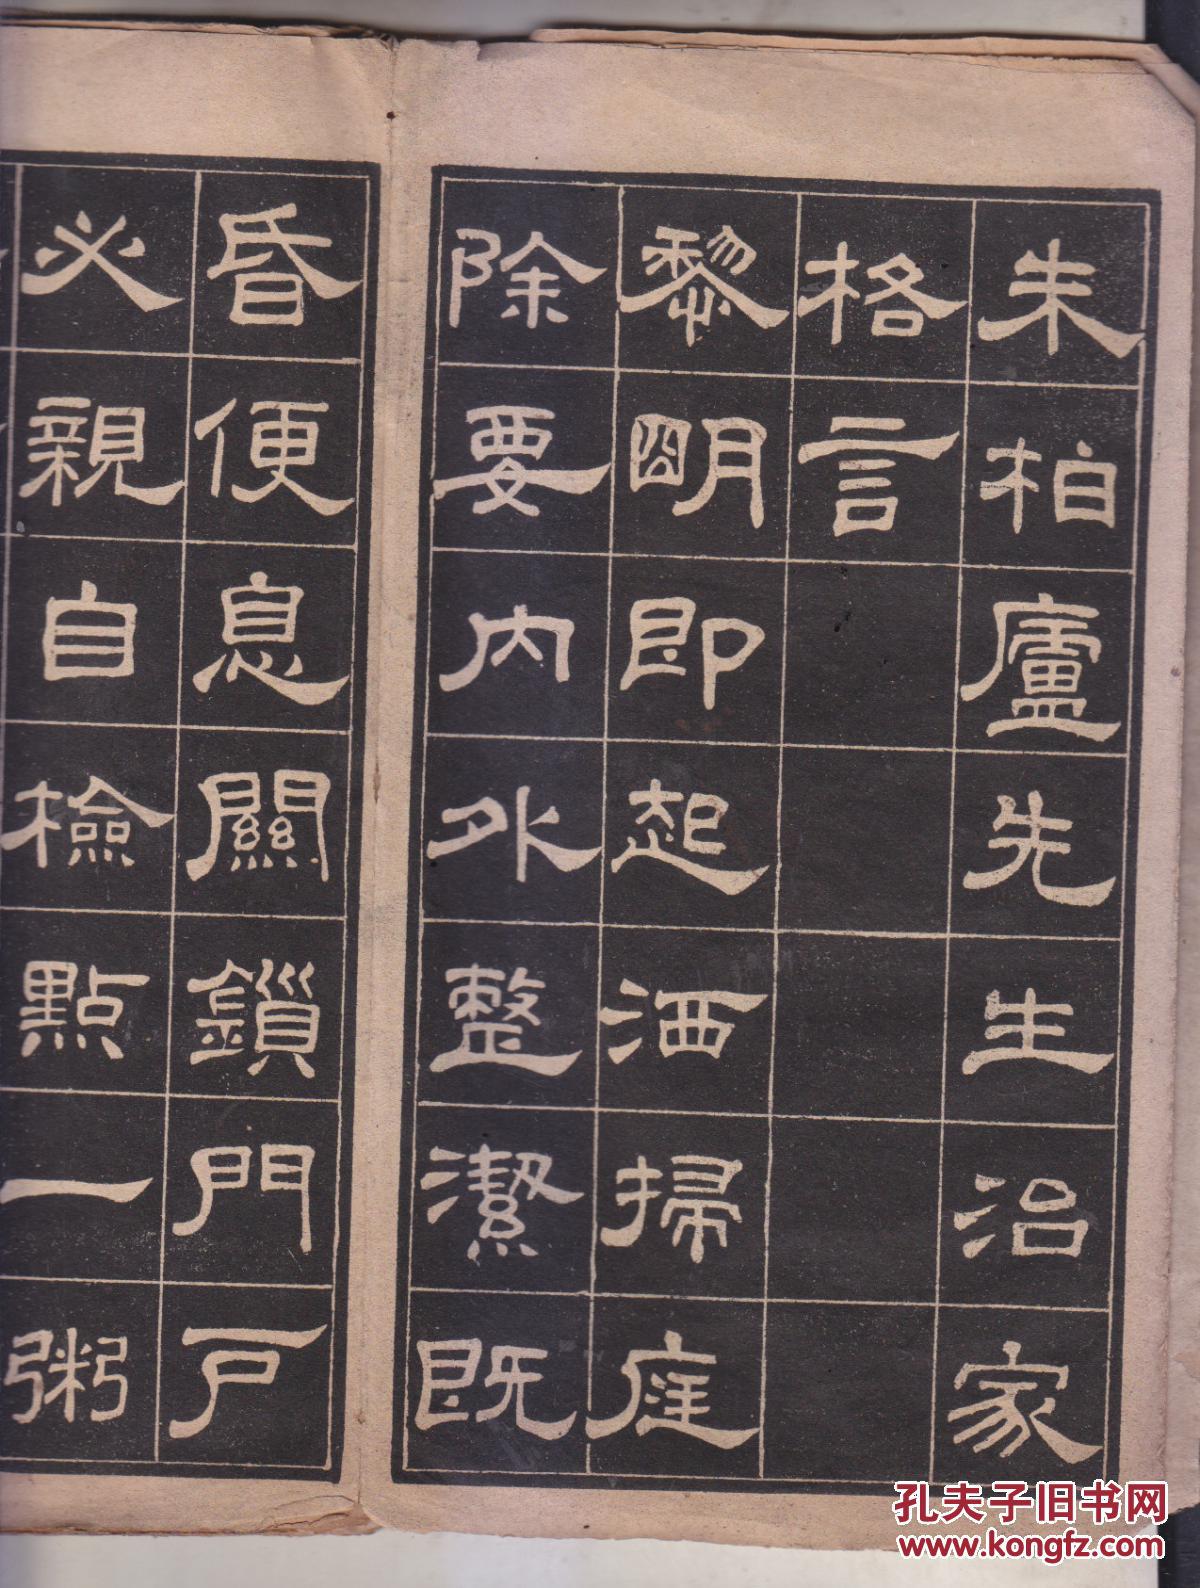 朱柏廬先生治家
格言
黎明即起洒掃庭
除要内外整潔既
昏便息關鎖門戶
必親自檢點一粥
孔夫子旧书网
www.kongfz.com